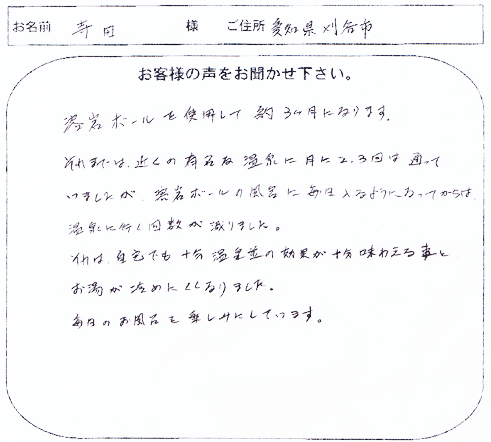 お名前 寺田 様 ご住所 愛知県刈谷市
お客様の声をお聞かせ下さい。
溶岩ボールを使用して約3ヶ月になります。
それまでは、近くの有名な温泉に月に2.3回は通って
いましたが、溶岩ボールの風呂に毎日入るようになってからは、
温泉に行く回数が減りました。
それは、自宅でも十分温泉並の効果が十分味わえる事と
お湯が冷めにくくなりました。
毎日のお風呂を楽しみにしています。